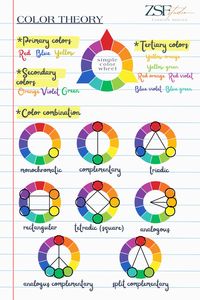 COLOR THEORY
ZSF Studio
FASHION DESIGN
*Primary colors
Red Blue Yellow
*Secondary colors
Orange Violet Green
simple
color
wheel
*Tertiary colors
Yellow orange
Yellow green
Red orange Red violet
Blue violet Blue green
*Color combination
monochromatic
complementary
triadic
rectangular
tetradic (square)
analogous
analogous complementary
split complementary